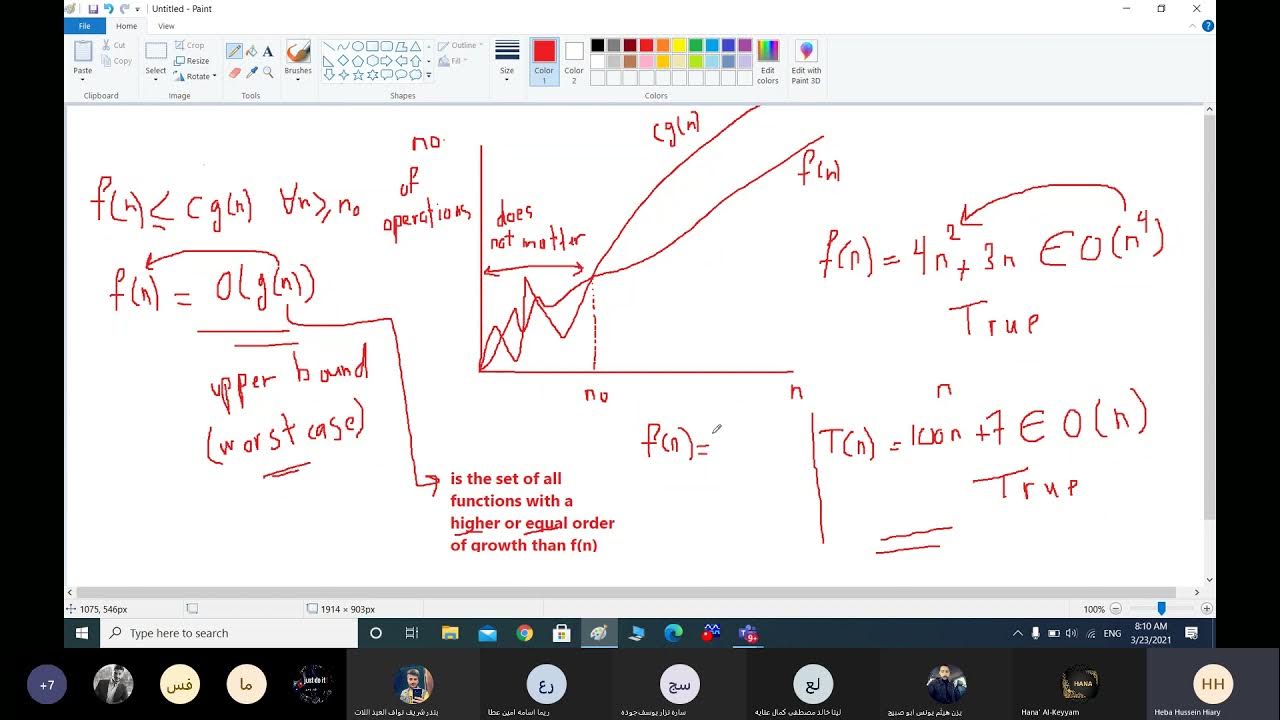 Untitled - Paint
File
Home
View
Paste
Cut
Copy
Clipboard
Select
Crop
Resize
Rotate
Image
A
Tools
Brushes
Outline
Fill
Shapes
Size
Color
1
Color
2
Edit
colors
Edit with
Paint 3D
Colors
f(n) ≤ c g(n) ∀n≥n₀
f(n) = O(g(n))
upper bound
(worst case)
no.
of
operations
does
not matter
cg(n)
f(n)
n₀
n
is the set of all
functions with a
higher or equal order
of growth than f(n)
f(n)=
f(n) = 4n² + 3n ∈ O(n⁴)
True
n
T(n) = 100n + 7 ∈ O(n)
True
1075, 546px
1914 × 903px
100%
Type here to search
9+
ENG
8:10 AM
3/23/2021
+7
فس
ما
just do it
بندر شريف نواف العبد اللات
رع
ريما اسامه امين عطا
سج
ساره نزار يوسف جوده
لع
لينا خالد مصطفى كمال عنابه
يزن هيثم يونس ابو صبيح
HANA
Hana' Al-Keyyam
HH
Heba Hussein Hiary